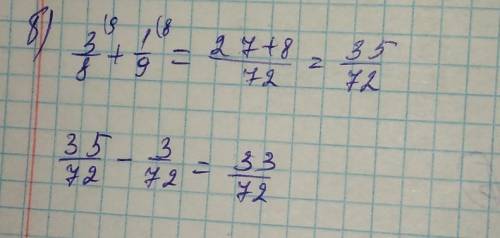 8) 3/8 (9 + 1/9 (8 = 27+8/72 = 35/72
35/72 - 3/72 = 33/72